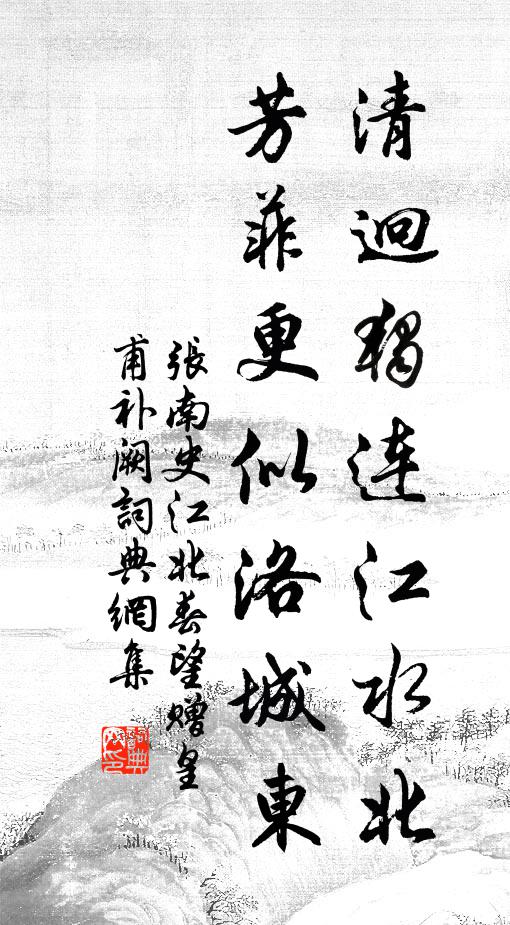 清迥獨連江水北
芳菲更似洛城東
張南史江北春望贈皇
甫补阙詞典網集